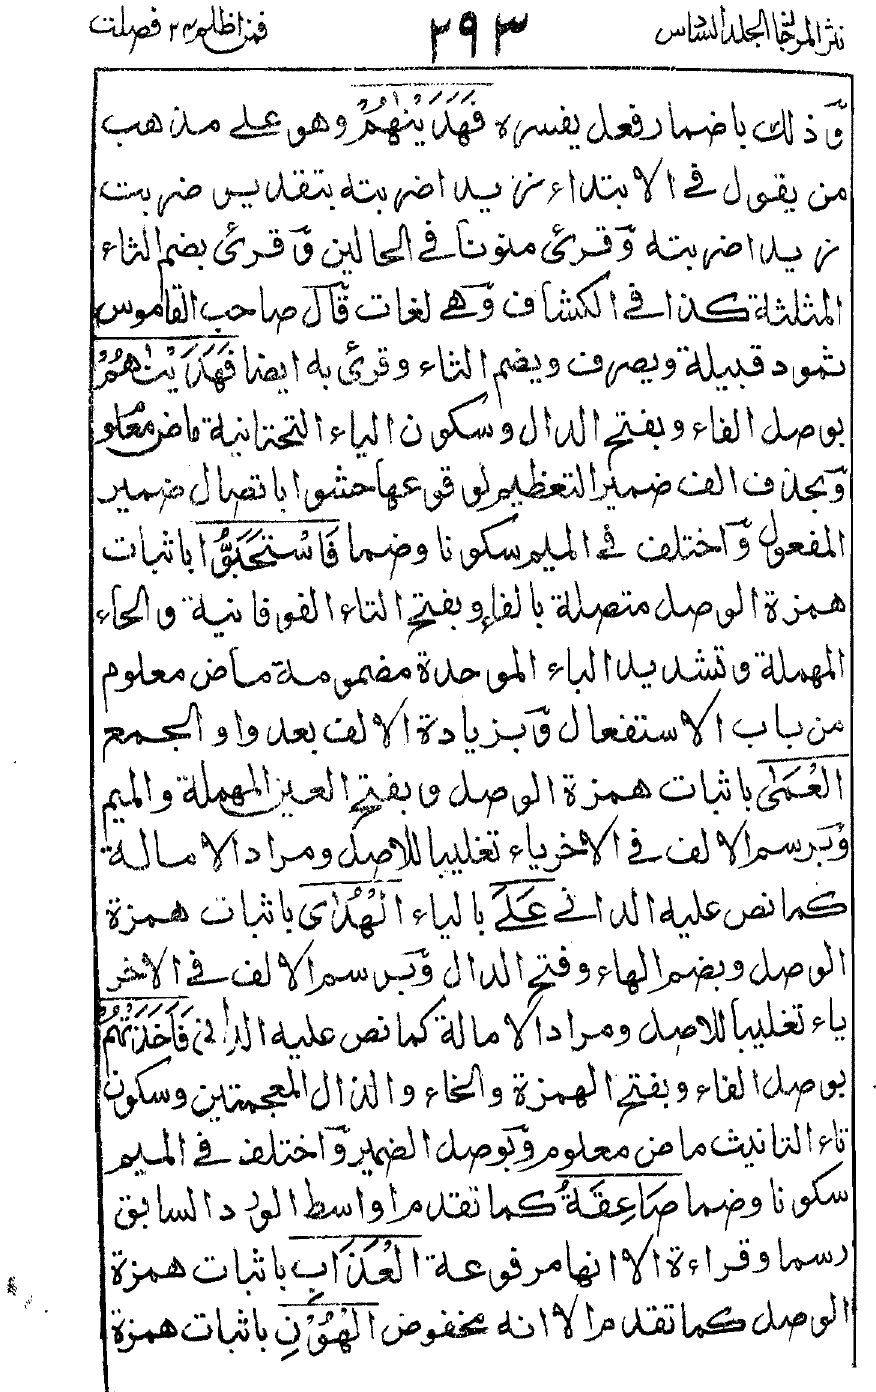 نثر المرجان الجلد السادس ٢٩٣ فمن اظلم ٢٤ فصلت
وّذلك باضمار فعل يفسره فَهَدَيْنٰهُمْ وهو على مذهب
من يقول في الابتداء زيدا ضربته بتقدير ضربت
زيدا ضربته وّقرئ منونا في الحالين وّقرئ بضم الثاء
المثلثة كذا في الكشاف وّهي لغات قّال صاحب القاموس
ثمود قبيلة ويصرف ويضم الثاء وقرئ به ايضا فَهَدَيْنٰهُمْ
بوصل الفاء وبفتح الدال وسكون الياء التحتانية ماض معلوم
وّبحذف الف ضمير التعظيم لوقوعها حشوا باتصال ضمير
المفعول وّاختلف في الميم سكونا وضما فَاسْتَحَبُّوا باثبات
همزة الوصل متصلة بالفاء وبفتح التاء الفوقانية والحاء
المهملة وتشديد الباء الموحدة مضمومة ماض معلوم
من باب الاستفعال وّبزيادة الالف بعد واو الجمع
الْعَمٰى باثبات همزة الوصل وبفتح العين المهملة والميم
وّبرسم الالف في الاخر ياء تغليبا للاصل ومراد الامالة
كما نص عليه الداني عَلَى بالياء الْهُدٰى باثبات همزة
الوصل وبضم الهاء وفتح الدال وّبرسم الالف في الاخر
ياء تغليبا للاصل ومراد الامالة كما نص عليه الداني فَاَخَذَتْهُمْ
بوصل الفاء وبفتح الهمزة والخاء والذال المعجمتين وسكون
تاء التانيث ماض معلوم وّبوصل الضمير وّاختلف في الميم
سكونا وضما صَاعِقَةُ كما تقدم اواسط الورد السابق
رسما وقراءة الا انها مرفوعة الْعَذَابِ باثبات همزة
الوصل كما تقدم الا انه مخفوض الْهُوْنِ باثبات همزة